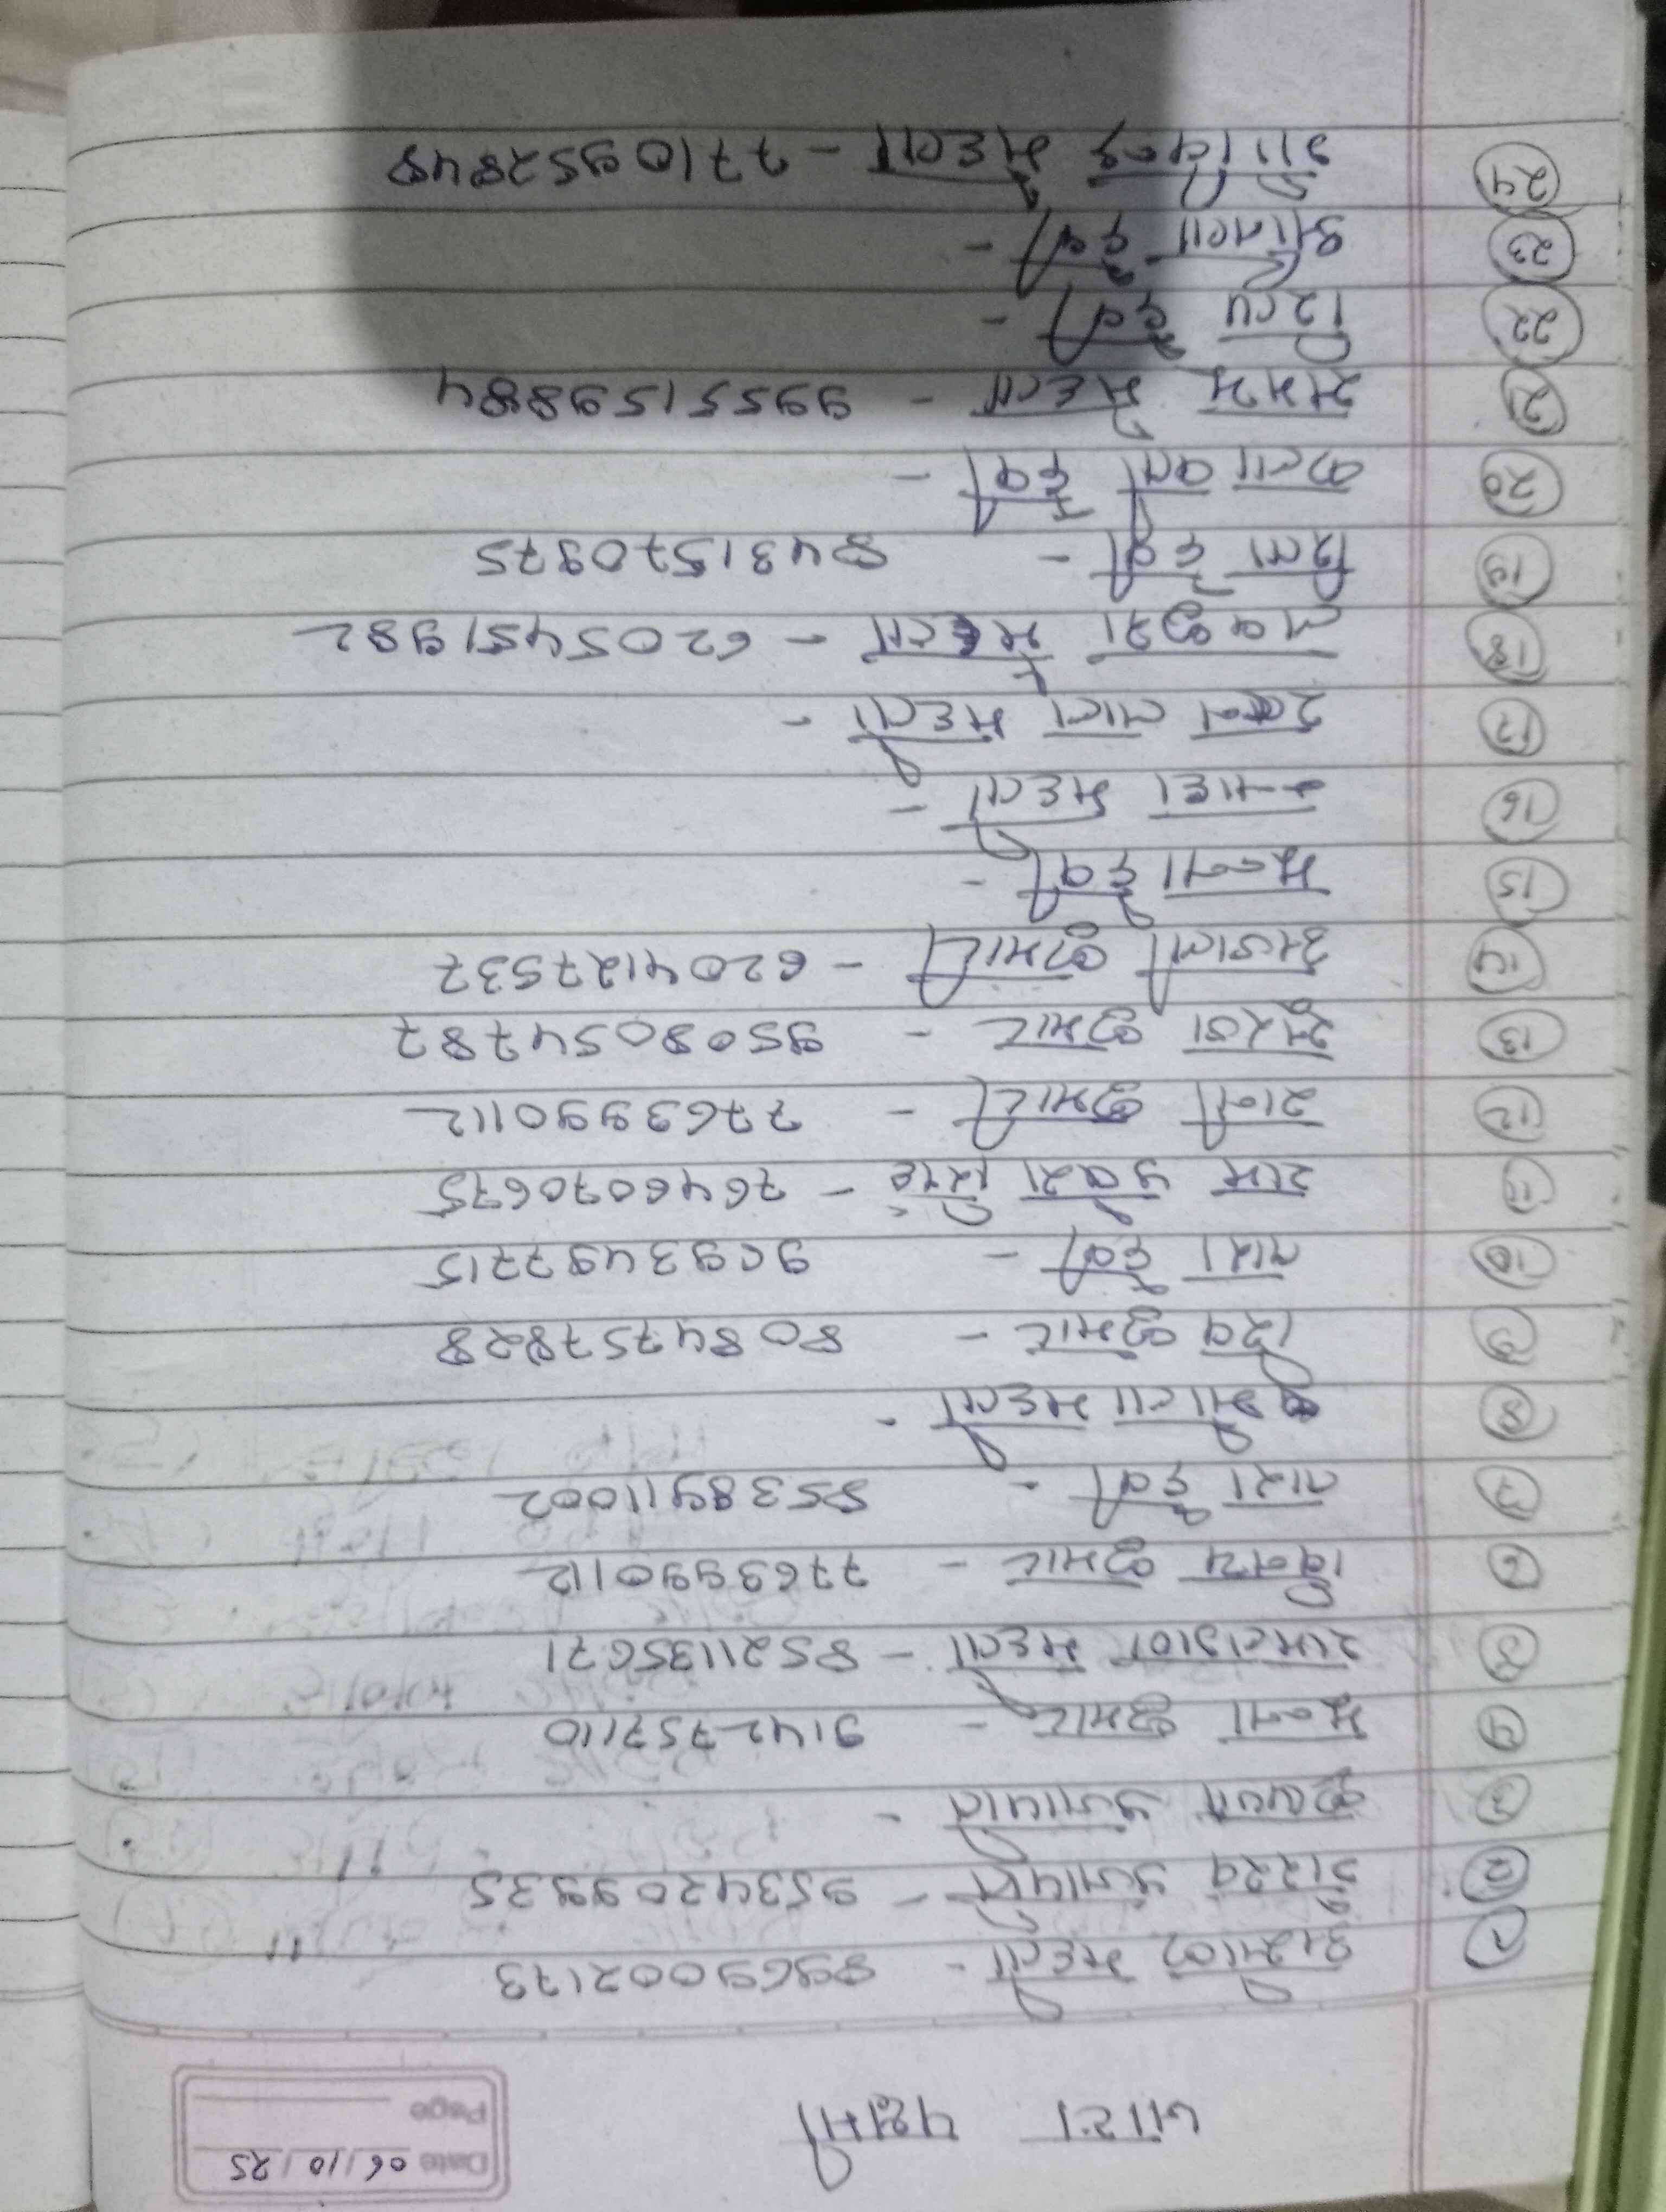 Date 06/10/25
Page
पश्चिमी
① अशोक मेहता - 8969002173
② प्रजापति - 9534209935
③ प्रजापति -
④ मुन्ना कुमार - 9142757110
⑤ मेहता - 8521135671
⑥ विनय कुमार - 7763990112
⑦ तारा देवी - 8538911002
⑧ मेहता -
⑨ शिव कुमार - 8084757828
⑩ तारा देवी - 9693497715
⑪ राम प्रवेश सिंह - 7646070675
⑫ रानी कुमारी - 7763990112
⑬ सूरज कुमार - 9508054787
⑭ अंजली कुमारी - 6204127537
⑮ मुन्ना देवी -
⑯ मेहता -
⑰ लाल मेहता -
⑱ नवकेश मेहता - 6205451982
⑲ देवी - 8431570975
⑳ कलावती देवी -
㉑ मेहता - 9955159884
㉒ प्रिया देवी -
㉓ देवी -
㉔ गोविन्द मेहता - 7710952848